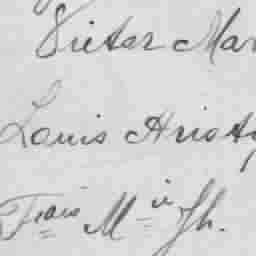 Victor Mar
Louis Aristy
Fçois M in Jh.